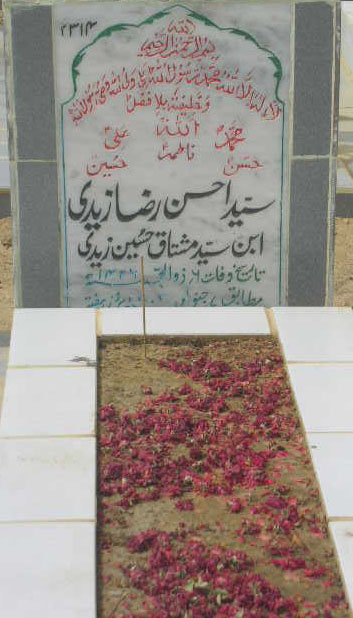 ۴۳۱۴
الله
بسم الله الرحمن الرحیم
لا اله الا الله محمد رسول الله علی ولی الله وصی رسول الله
وخلیفته بلا فصل
محمدؐ الله علیؑ
حسنؑ فاطمہؑ حسینؑ
سیّد احسن رضا زیدی
ابن سیّد مشتاق حُسین زیدی
تاریخ وفات ۶ ذوالحجہ
مطابق ہفتہ